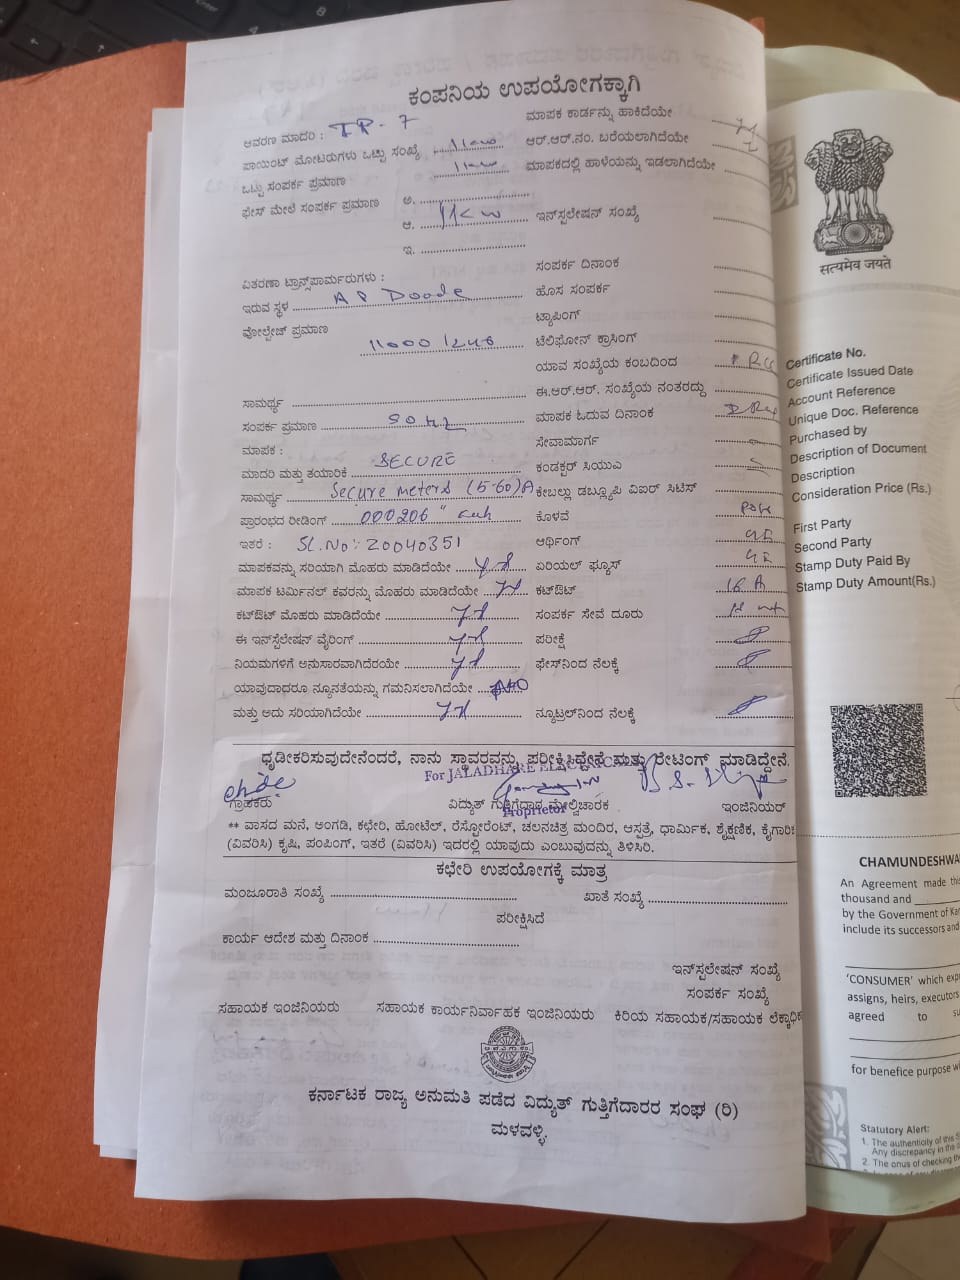 ಕಂಪನಿಯ ಉಪಯೋಗಕ್ಕಾಗಿ
ಆವರಣ ಮಾದರಿ : IP-7
ಪಾಯಿಂಟ್ ಮೋಟರುಗಳು ಒಟ್ಟು ಸಂಖ್ಯೆ 11kw
ಒಟ್ಟು ಸಂಪರ್ಕ ಪ್ರಮಾಣ 11kw
ಫೇಸ್ ಮೇಲೆ ಸಂಪರ್ಕ ಪ್ರಮಾಣ ಅ.
ಆ. 11kw
ಇ.
ವಿತರಣಾ ಟ್ರಾನ್ಸ್‌ಪಾರ್ಮರುಗಳು :
ಇರುವ ಸ್ಥಳ
ವೋಲ್ಟೇಜ್ ಪ್ರಮಾಣ
ಸಾಮರ್ಥ್ಯ
ಸಂಪರ್ಕ ಪ್ರಮಾಣ
ಮಾಪಕ :
ಮಾದರಿ ಮತ್ತು ತಯಾರಿಕೆ SECURE
ಸಾಮರ್ಥ್ಯ Secure meters (5-60)A
ಪ್ರಾರಂಭದ ರೀಡಿಂಗ್ 000206
ಇತರೆ : SL.No: 20040351
ಮಾಪಕವನ್ನು ಸರಿಯಾಗಿ ಮೊಹರು ಮಾಡಿದೆಯೇ
ಮಾಪಕ ಟರ್ಮಿನಲ್ ಕವರನ್ನು ಮೊಹರು ಮಾಡಿದೆಯೇ
ಕಟ್‌ಔಟ್ ಮೊಹರು ಮಾಡಿದೆಯೇ
ಈ ಇನ್‌ಸ್ಟಲೇಷನ್ ವೈರಿಂಗ್
ನಿಯಮಗಳಿಗೆ ಅನುಸಾರವಾಗಿದೆರಯೇ
ಯಾವುದಾದರೂ ನ್ಯೂನತೆಯನ್ನು ಗಮನಿಸಲಾಗಿದೆಯೇ NO
ಮತ್ತು ಅದು ಸರಿಯಾಗಿದೆಯೇ
ಮಾಪಕ ಕಾರ್ಡನ್ನು ಹಾಕಿದೆಯೇ
ಆರ್.ಆರ್.ನಂ. ಬರೆಯಲಾಗಿದೆಯೇ
ಮಾಪಕದಲ್ಲಿ ಹಾಳೆಯನ್ನು ಇಡಲಾಗಿದೆಯೇ
ಇನ್‌ಸ್ಪಲೇಷನ್ ಸಂಖ್ಯೆ
ಸಂಪರ್ಕ ದಿನಾಂಕ
ಹೊಸ ಸಂಪರ್ಕ
ಟ್ಯಾಪಿಂಗ್
ಟೆಲಿಫೋನ್ ಕ್ರಾಸಿಂಗ್
ಯಾವ ಸಂಖ್ಯೆಯ ಕಂಬದಿಂದ
ಈ.ಆರ್.ಆರ್. ಸಂಖ್ಯೆಯ ನಂತರದ್ದು
ಮಾಪಕ ಓದುವ ದಿನಾಂಕ
ಸೇವಾಮಾರ್ಗ
ಕಂಡಕ್ಟರ್ ಸಿಯುಎ
ಕೇಬಲ್ಲು ಡಬ್ಲ್ಯೂಪಿ ವಿಐರ್ ಸಿಟಿಸ್
ಕೊಳವೆ
ಆರ್ಥಿಂಗ್
ಏರಿಯಲ್ ಫ್ಯೂಸ್
ಕಟ್‌ಔಟ್ 16 A
ಸಂಪರ್ಕ ಸೇವೆ ದೂರು
ಪರೀಕ್ಷೆ
ಫೇಸ್‌ನಿಂದ ನೆಲಕ್ಕೆ
ನ್ಯೂಟ್ರಲ್‌ನಿಂದ ನೆಲಕ್ಕೆ
ಧೃಡೀಕರಿಸುವುದೇನೆಂದರೆ, ನಾನು ಸ್ಥಾವರವನ್ನು ಪರೀಕ್ಷಿಸಿದ್ದೇನೆ ಮತ್ತು ರೇಟಿಂಗ್ ಮಾಡಿದ್ದೇನೆ.
For JALADHARE ELECTRICALS
Proprietor
ಗ್ರಾಹಕರು ವಿದ್ಯುತ್ ಗುತ್ತಿಗೆದಾರ ಮೇಲ್ವಿಚಾರಕ ಇಂಜಿನಿಯರ್
** ವಾಸದ ಮನೆ, ಅಂಗಡಿ, ಕಛೇರಿ, ಹೋಟೆಲ್, ರೆಸ್ಟೋರೆಂಟ್, ಚಲನಚಿತ್ರ ಮಂದಿರ, ಆಸ್ಪತ್ರೆ, ಧಾರ್ಮಿಕ, ಶೈಕ್ಷಣಿಕ, ಕೈಗಾರಿಕ
(ವಿವರಿಸಿ) ಕೃಷಿ, ಪಂಪಿಂಗ್, ಇತರೆ (ವಿವರಿಸಿ) ಇದರಲ್ಲಿ ಯಾವುದು ಎಂಬುವುದನ್ನು ತಿಳಿಸಿರಿ.
ಕಛೇರಿ ಉಪಯೋಗಕ್ಕೆ ಮಾತ್ರ
ಮಂಜೂರಾತಿ ಸಂಖ್ಯೆ ಖಾತೆ ಸಂಖ್ಯೆ
ಪರೀಕ್ಷಿಸಿದೆ
ಕಾರ್ಯ ಆದೇಶ ಮತ್ತು ದಿನಾಂಕ
ಇನ್‌ಸ್ಪಲೇಷನ್ ಸಂಖ್ಯೆ
ಸಂಪರ್ಕ ಸಂಖ್ಯೆ
ಸಹಾಯಕ ಇಂಜಿನಿಯರು ಸಹಾಯಕ ಕಾರ್ಯನಿರ್ವಾಹಕ ಇಂಜಿನಿಯರು ಕಿರಿಯ ಸಹಾಯಕ/ಸಹಾಯಕ ಲೆಕ್ಕಾಧಿಕ
ಕರ್ನಾಟಕ ರಾಜ್ಯ ಅನುಮತಿ ಪಡೆದ ವಿದ್ಯುತ್ ಗುತ್ತಿಗೆದಾರರ ಸಂಘ (ರಿ)
ಮಳವಳ್ಳಿ.
सत्यमेव जयते
Certificate No.
Certificate Issued Date
Account Reference
Unique Doc. Reference
Purchased by
Description of Document
Description
Consideration Price (Rs.)
First Party
Second Party
Stamp Duty Paid By
Stamp Duty Amount(Rs.)
CHAMUNDESHWA
An Agreement made this
thousand and
by the Government of Kar
include its successors and
'CONSUMER' which exp
assigns, heirs, executors
agreed to
for benefice purpose wi
Statutory Alert:
1. The authenticity of this S
Any discrepancy in the d
2. The onus of checking the